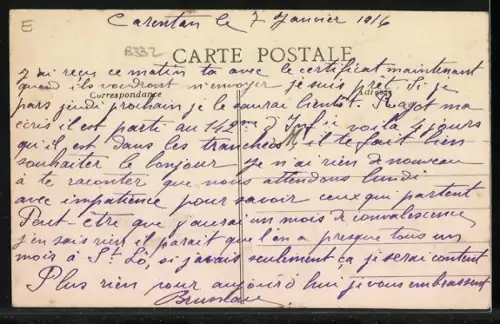 E
Carentan le 7 Janvier 1916
B332
CARTE POSTALE
J'ai reçu ce matin ta avec le certificat maintenant
quand ils voudront m'envoyer je suis prêt. Si je
Correspondance
Adresse
pars jeudi prochain je le saurai bientôt. Ragot m'a
écris il est parti au 142me d'I voilà 4 jours
qu'il est dans les tranchées il te fait bien
souhaiter le bonjour je n'ai rien de nouveau
à te raconter que nous attendons lundi
avec impatience pour savoir ceux qui partent
Peut-être que j'aurai un mois de convalescence
j'en sais rien il parait que l'on a presque tous un
mois à St Lô, si j'avais seulement ça je serai content
Plus rien pour aujourd'hui je vous embrassent